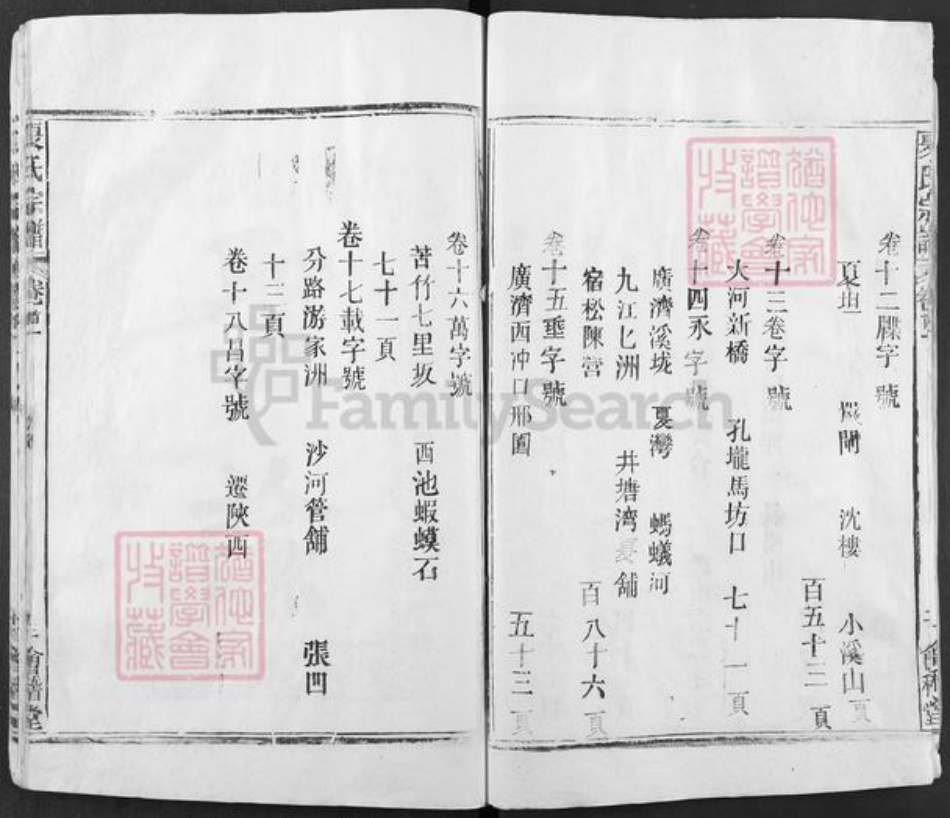 卷十二牒字號
夏坦 閘 沈樓 小溪山頁
百五十三頁
卷十三卷字號
大河新橋 孔壠馬坊口 七十一頁
卷十四永字號
廣濟溪垅 夏灣 螞蟻河
九江七洲 井塘湾夏舗
宿松陳营 百八十六頁
卷十五垂字號
廣濟西冲口邢圓 五十三頁
卷首
卷十六萬字號
苦竹七里坂 西池蝦蟆石
七十一頁
卷十七載字號
分路游家洲 沙河管舖 張凹
十三頁
卷十八昌字號 遷陝西
夏氏宗譜 卷首 會稽堂
FamilySearch
譜學會
收藏
譜學會
收藏